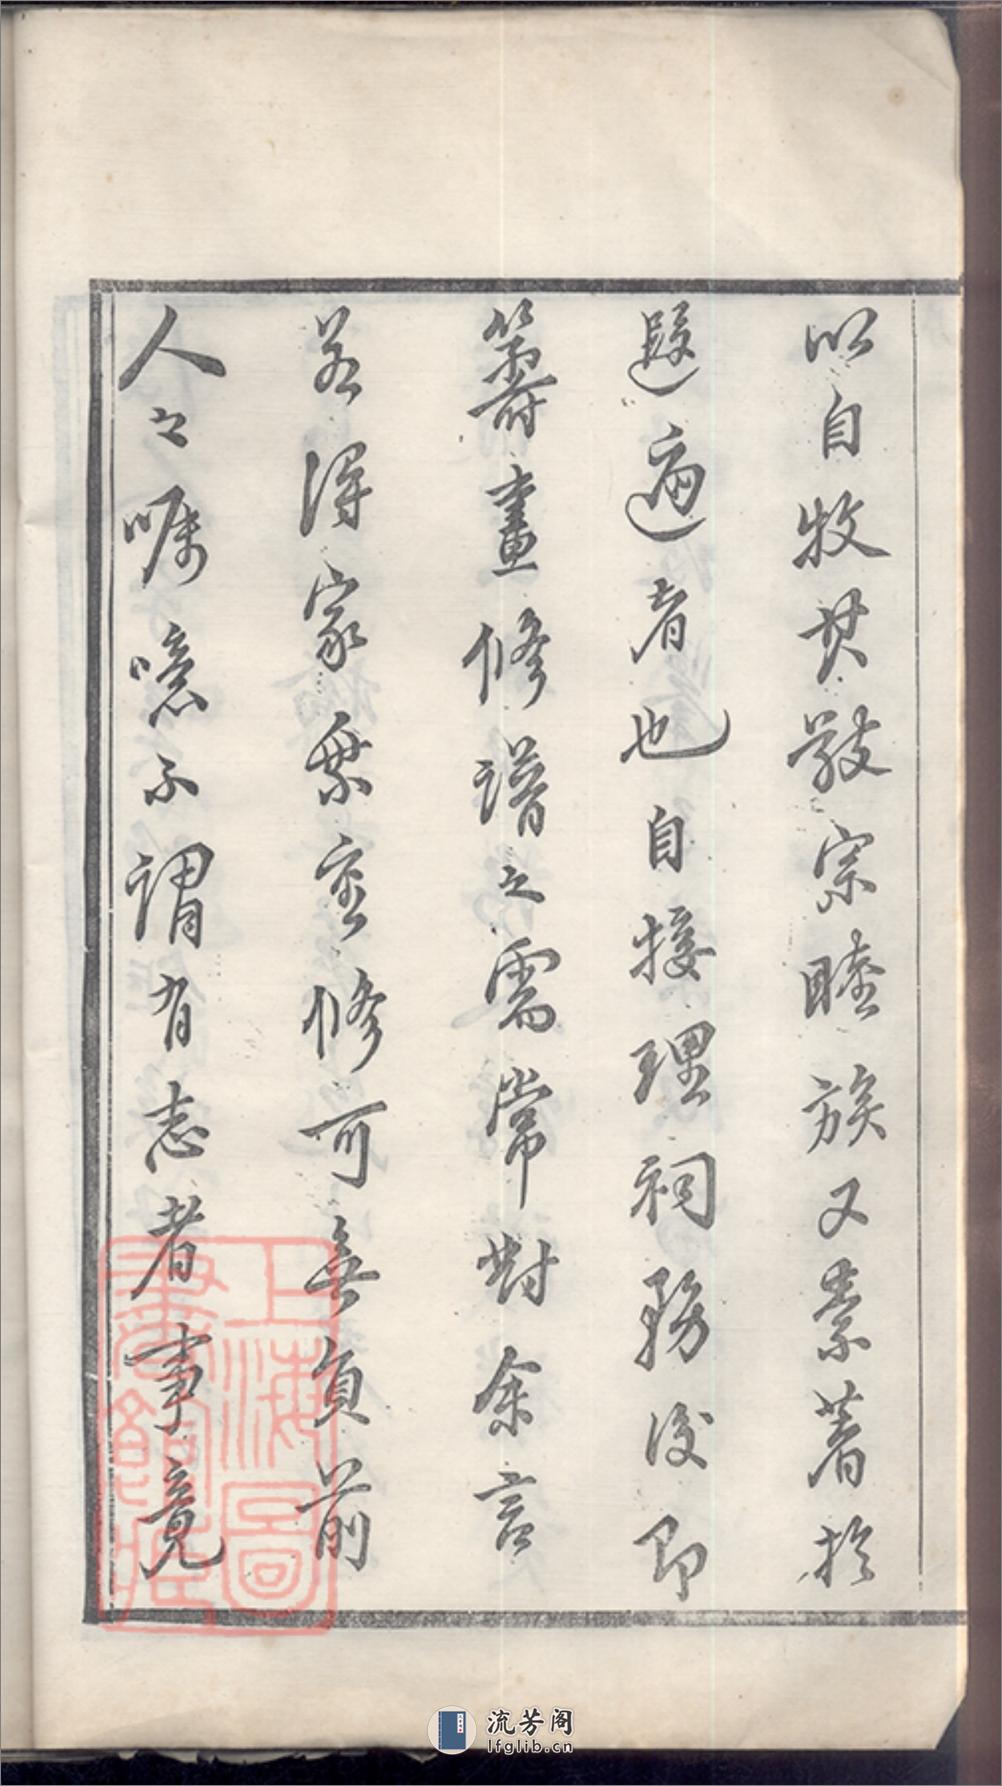 以自牧其敬宗睦族又素著於
遐迩者也自接理祠務後即
籌畫修譜之需常對余言
若得家乘重修可無負前
人之嘱噫不謂有志者事竟
上海圖書館藏
流芳阁
lfglib.cn